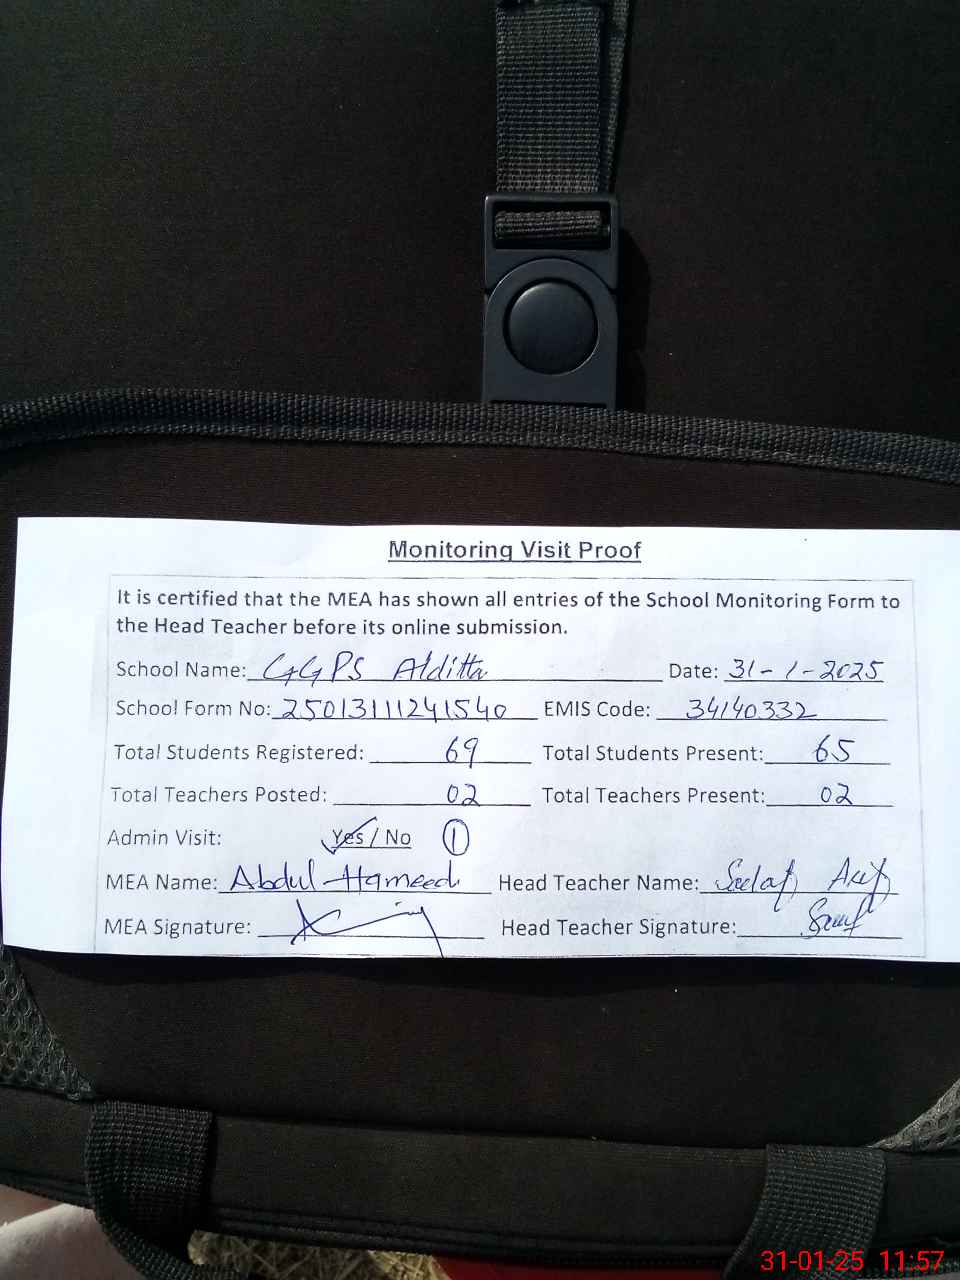 Monitoring Visit Proof
It is certified that the MEA has shown all entries of the School Monitoring Form to
the Head Teacher before its online submission.
School Name: GGPS Alditta Date: 31-1-2025
School Form No: 25013111241540 EMIS Code: 34140332
Total Students Registered: 69 Total Students Present: 65
Total Teachers Posted: 02 Total Teachers Present: 02
Admin Visit: Yes / No 1
MEA Name: Abdul Hameed Head Teacher Name:
MEA Signature: Head Teacher Signature:
31-01-25 11:57